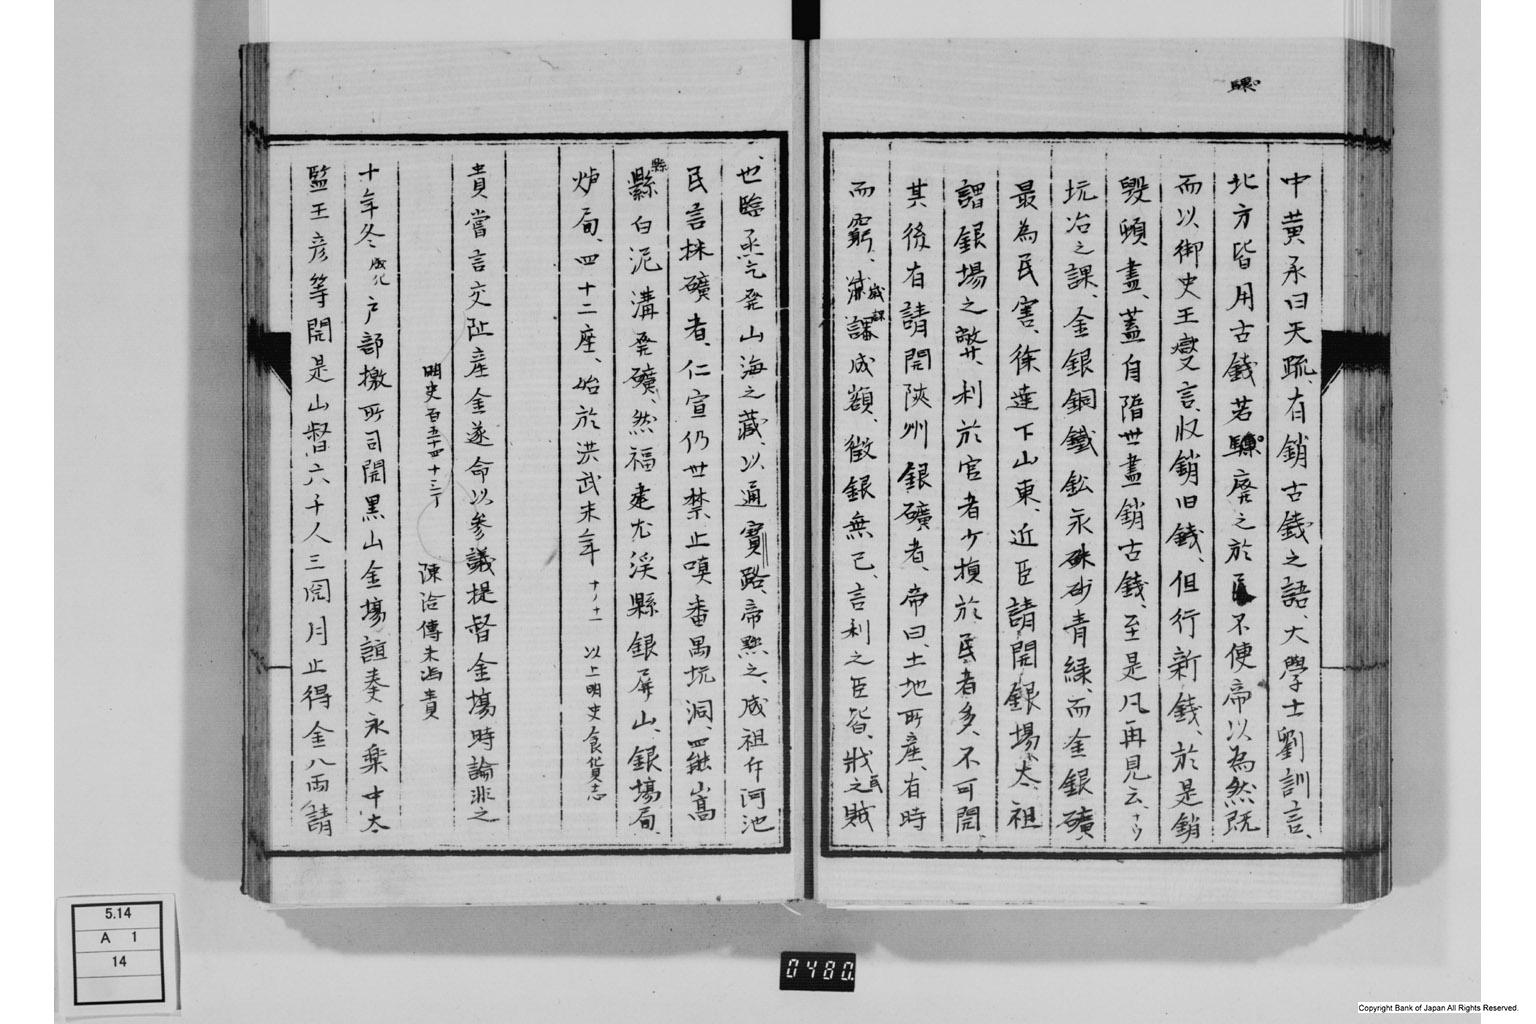 驟
中黄承曰天疏、有銷古錢之語、大學士劉訓言、
北方皆用古錢若驟廃之於民不使帝以為然既
而以御史王燮言、収銷旧錢、但行新錢、於是銷
毀頓盡、蓋自隋世盡銷古錢、至是凡再見云、十ウ
坑冶之課、金銀銅鐵鉛汞硃砂青緑、而金銀礦
最為民害、徐達下山東、近臣請開銀場、太祖
謂銀場之敝廿、利於官者少損於民者多、不可開、
其後有請開陝州銀礦者、帝曰、土地所産、有時
而窮、歳課成額、徴銀無已、言利之臣皆、戕民之賊
也、臨丞乞発山海之藏、以通寶路、帝黙之、成祖斥河池
民言採礦者、仁宣仍世禁止嗅番禺坑洞、罷嵩
縣白泥溝発礦、然福建尤渓縣銀屏山、銀場局、
炉局、四十二座、始於洪武末年 十ノ十一 以上明史食貨志
貴嘗言交阯産金遂命以参議提督金場時論非之
明史百五十四十三丁 陳洽傳末馮貴
十年冬 成化 戸部檄所司開黒山金場誼奏永楽中太
監王彦等開是山督六千人三閲月止得金八両請
5.14
A 1
14
0480
Copyright Bank of Japan All Rights Reserved.